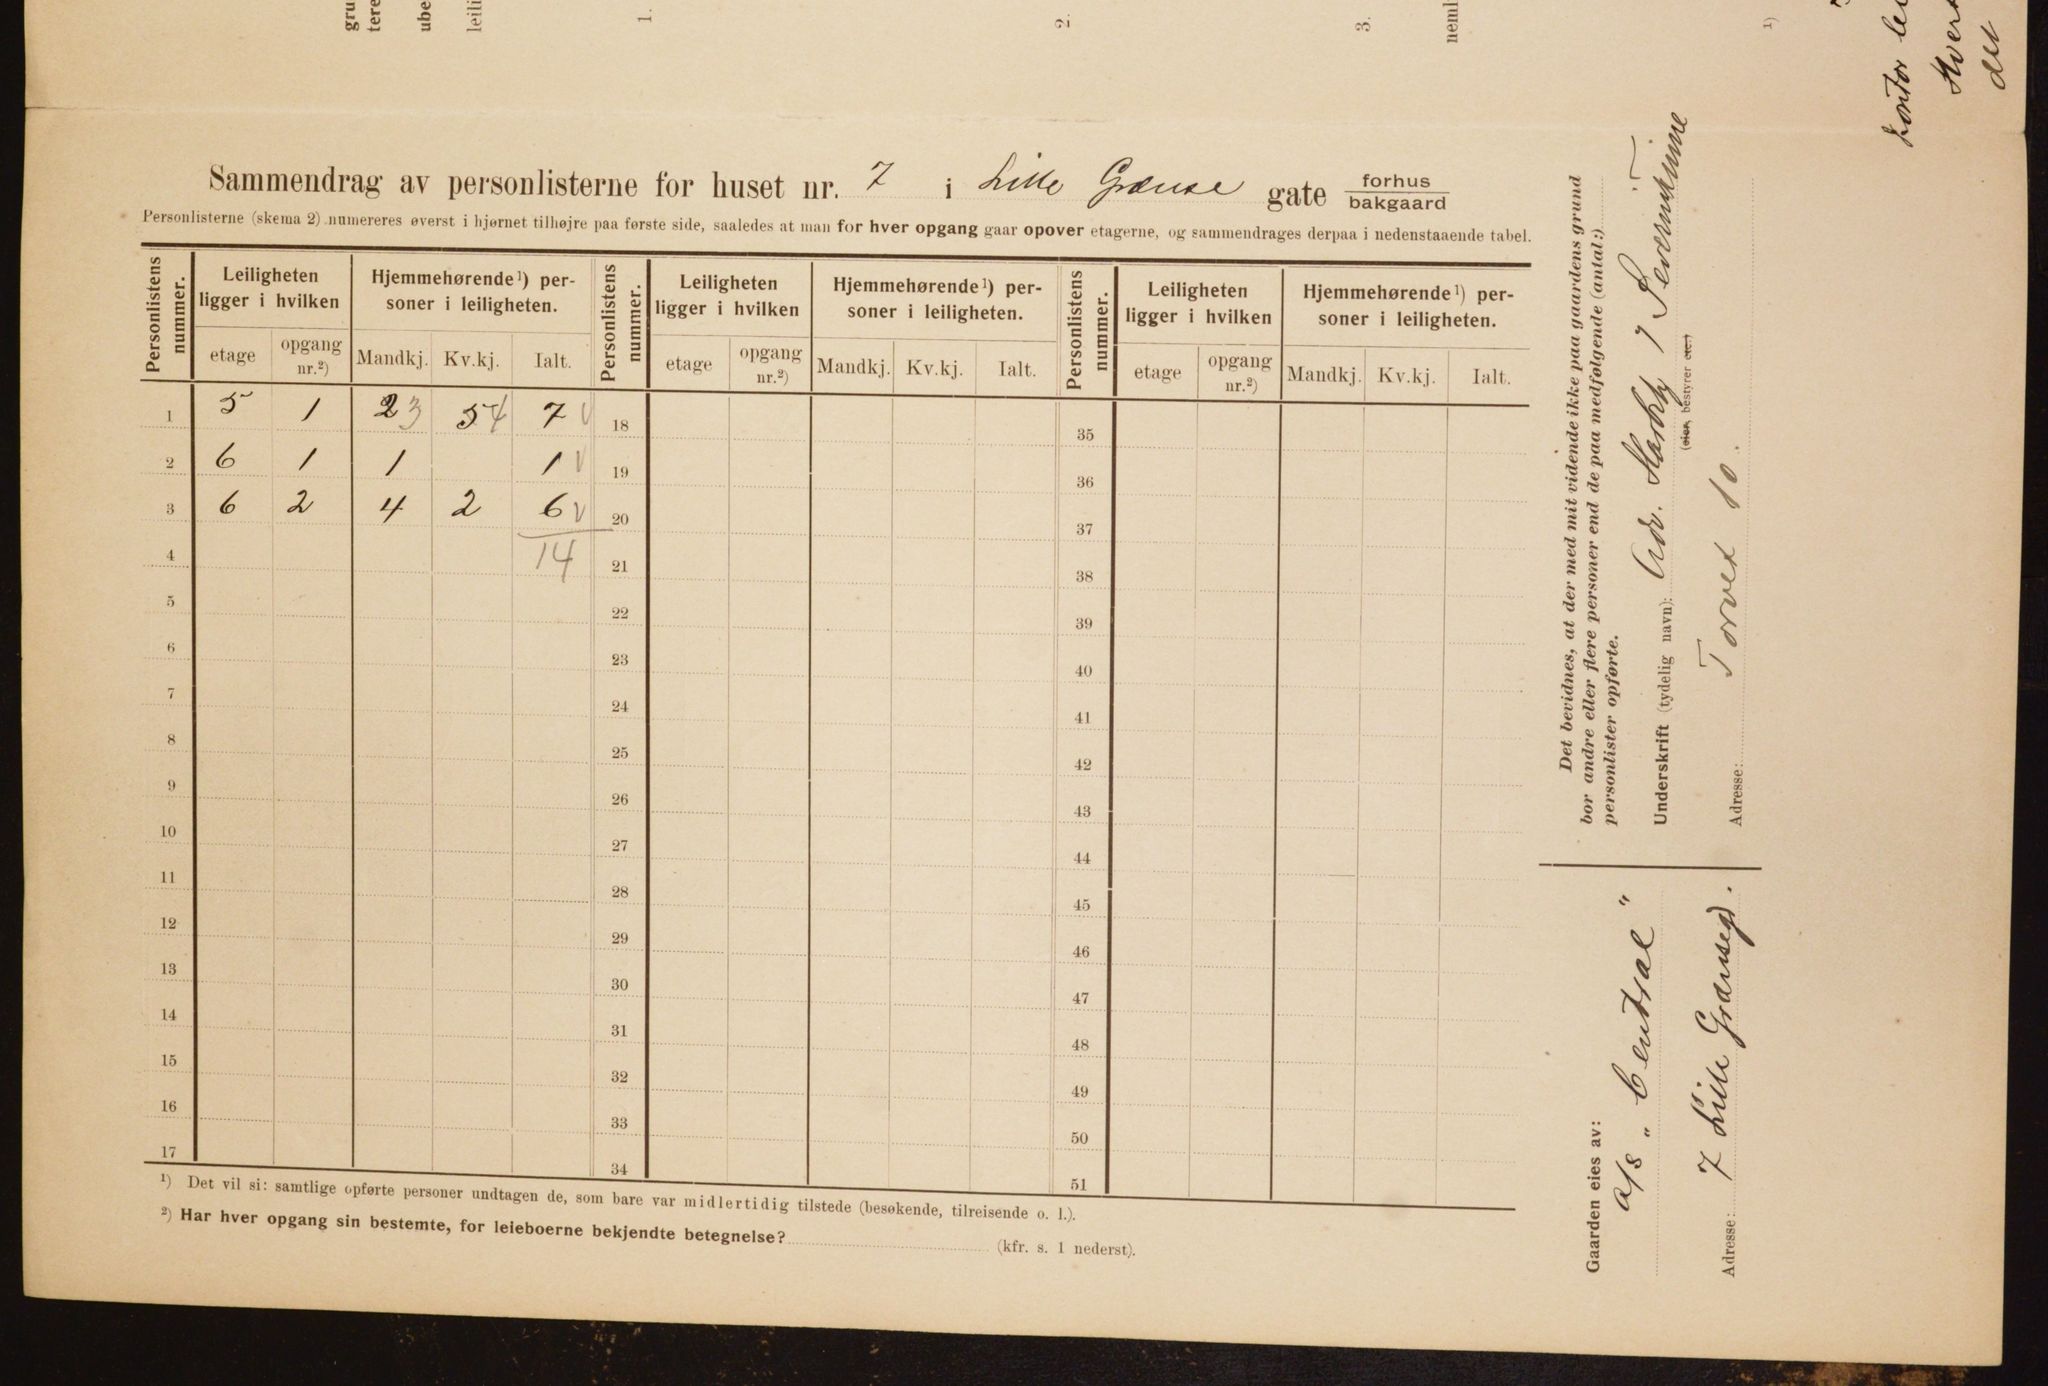 gru
tere
ube
leili
1.
2.
3.
neml
1)
Kontor
Hvert
det
Sammendrag av personlisterne for huset nr. 7 i Lille Grænse gate forhus
bakgaard
Personlisterne (skema 2) numereres øverst i hjørnet tilhøjre paa første side, saaledes at man for hver opgang gaar opover etagerne, og sammendrages derpaa i nedenstaaende tabel.
Personlistens nummer. Leiligheten ligger i hvilken Hjemmehørende¹) personer i leiligheten. Personlistens nummer. Leiligheten ligger i hvilken Hjemmehørende¹) personer i leiligheten. Personlistens nummer. Leiligheten ligger i hvilken Hjemmehørende¹) personer i leiligheten.
etage opgang nr.²) Mandkj. Kv.kj. Ialt. etage opgang nr.²) Mandkj. Kv.kj. Ialt. etage opgang nr.²) Mandkj. Kv.kj. Ialt.
1 5 1 2 3 5 4 7 V 18 35
2 6 1 1 1 V 19 36
3 6 2 4 2 6 V 20 37
4 14 21 38
5 22 39
6 23 40
7 24 41
8 25 42
9 26 43
10 27 44
11 28 45
12 29 46
13 30 47
14 31 48
15 32 49
16 33 50
17 34 51
¹) Det vil si: samtlige opførte personer undtagen de, som bare var midlertidig tilstede (besøkende, tilreisende o. l.).
²) Har hver opgang sin bestemte, for leieboerne bekjendte betegnelse? (kfr. s. 1 nederst).
Det bevidnes, at der med mit vidende ikke paa gaardens grund
bor andre eller flere personer end de paa medfølgende (antal:)
personlister opførte.
Underskrift (tydelig navn):
(eier, bestyrer etc.)
Adresse: Torvet 10.
Gaarden eies av:
a/s "Central"
Adresse: 7 Lille Grænsegd.